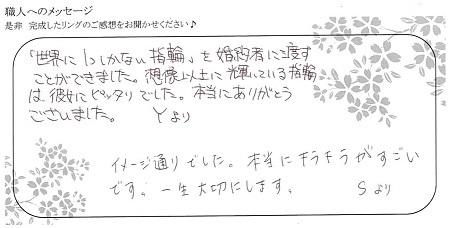 職人へのメッセージ
是非 完成したリングのご感想をお聞かせください♪
「世界に1つしかない指輪」を婚約者に渡す
ことができました。想像以上に輝いている指輪
は、彼女にピッタリでした。本当にありがとう
ございました。 Yより
イメージ通りでした。本当にキラキラがすごい
です。一生大切にします。 Sより